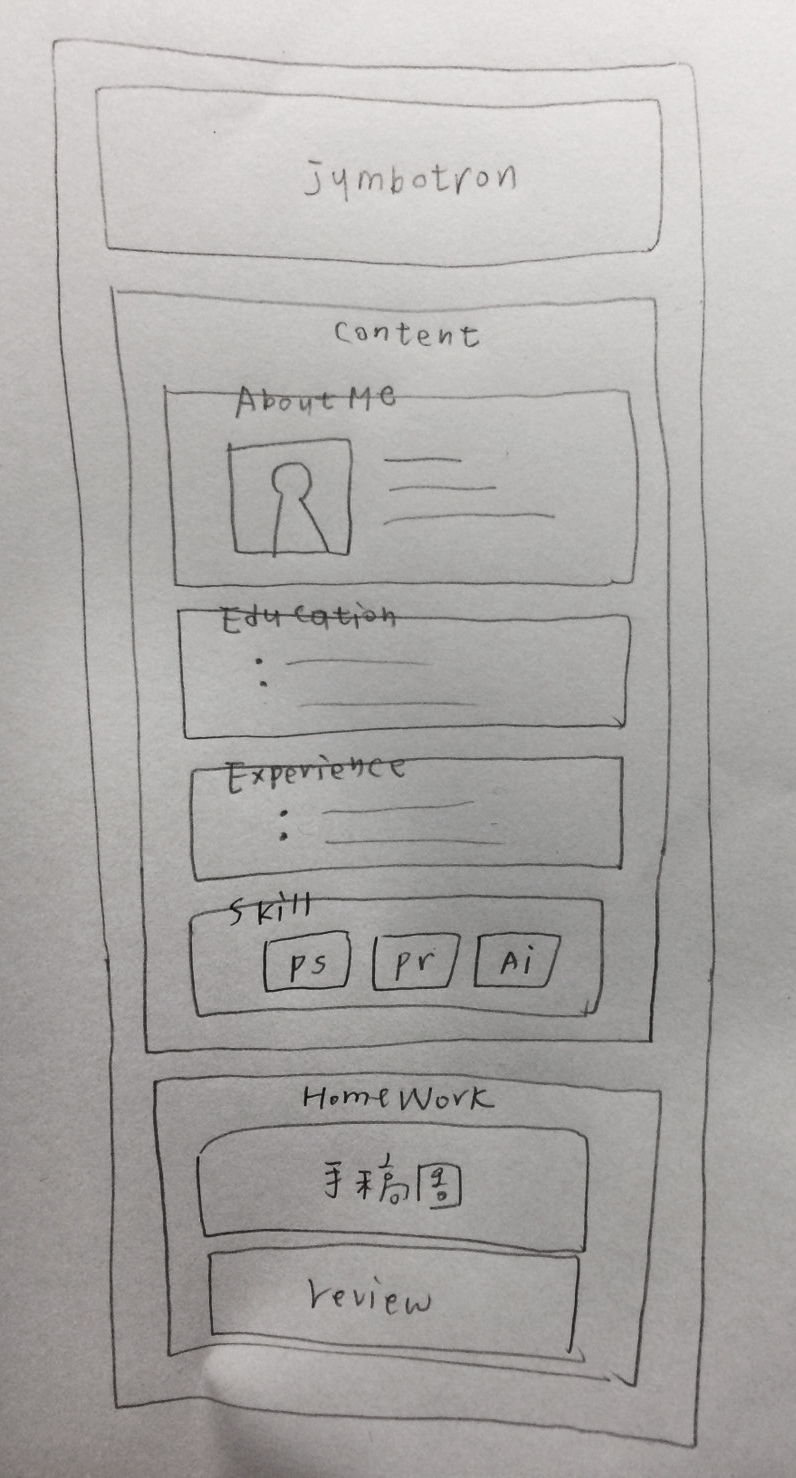 jymbotron
Content
About Me
Education
Experience
Skill
ps pr Ai
HomeWork
手稿圖
review